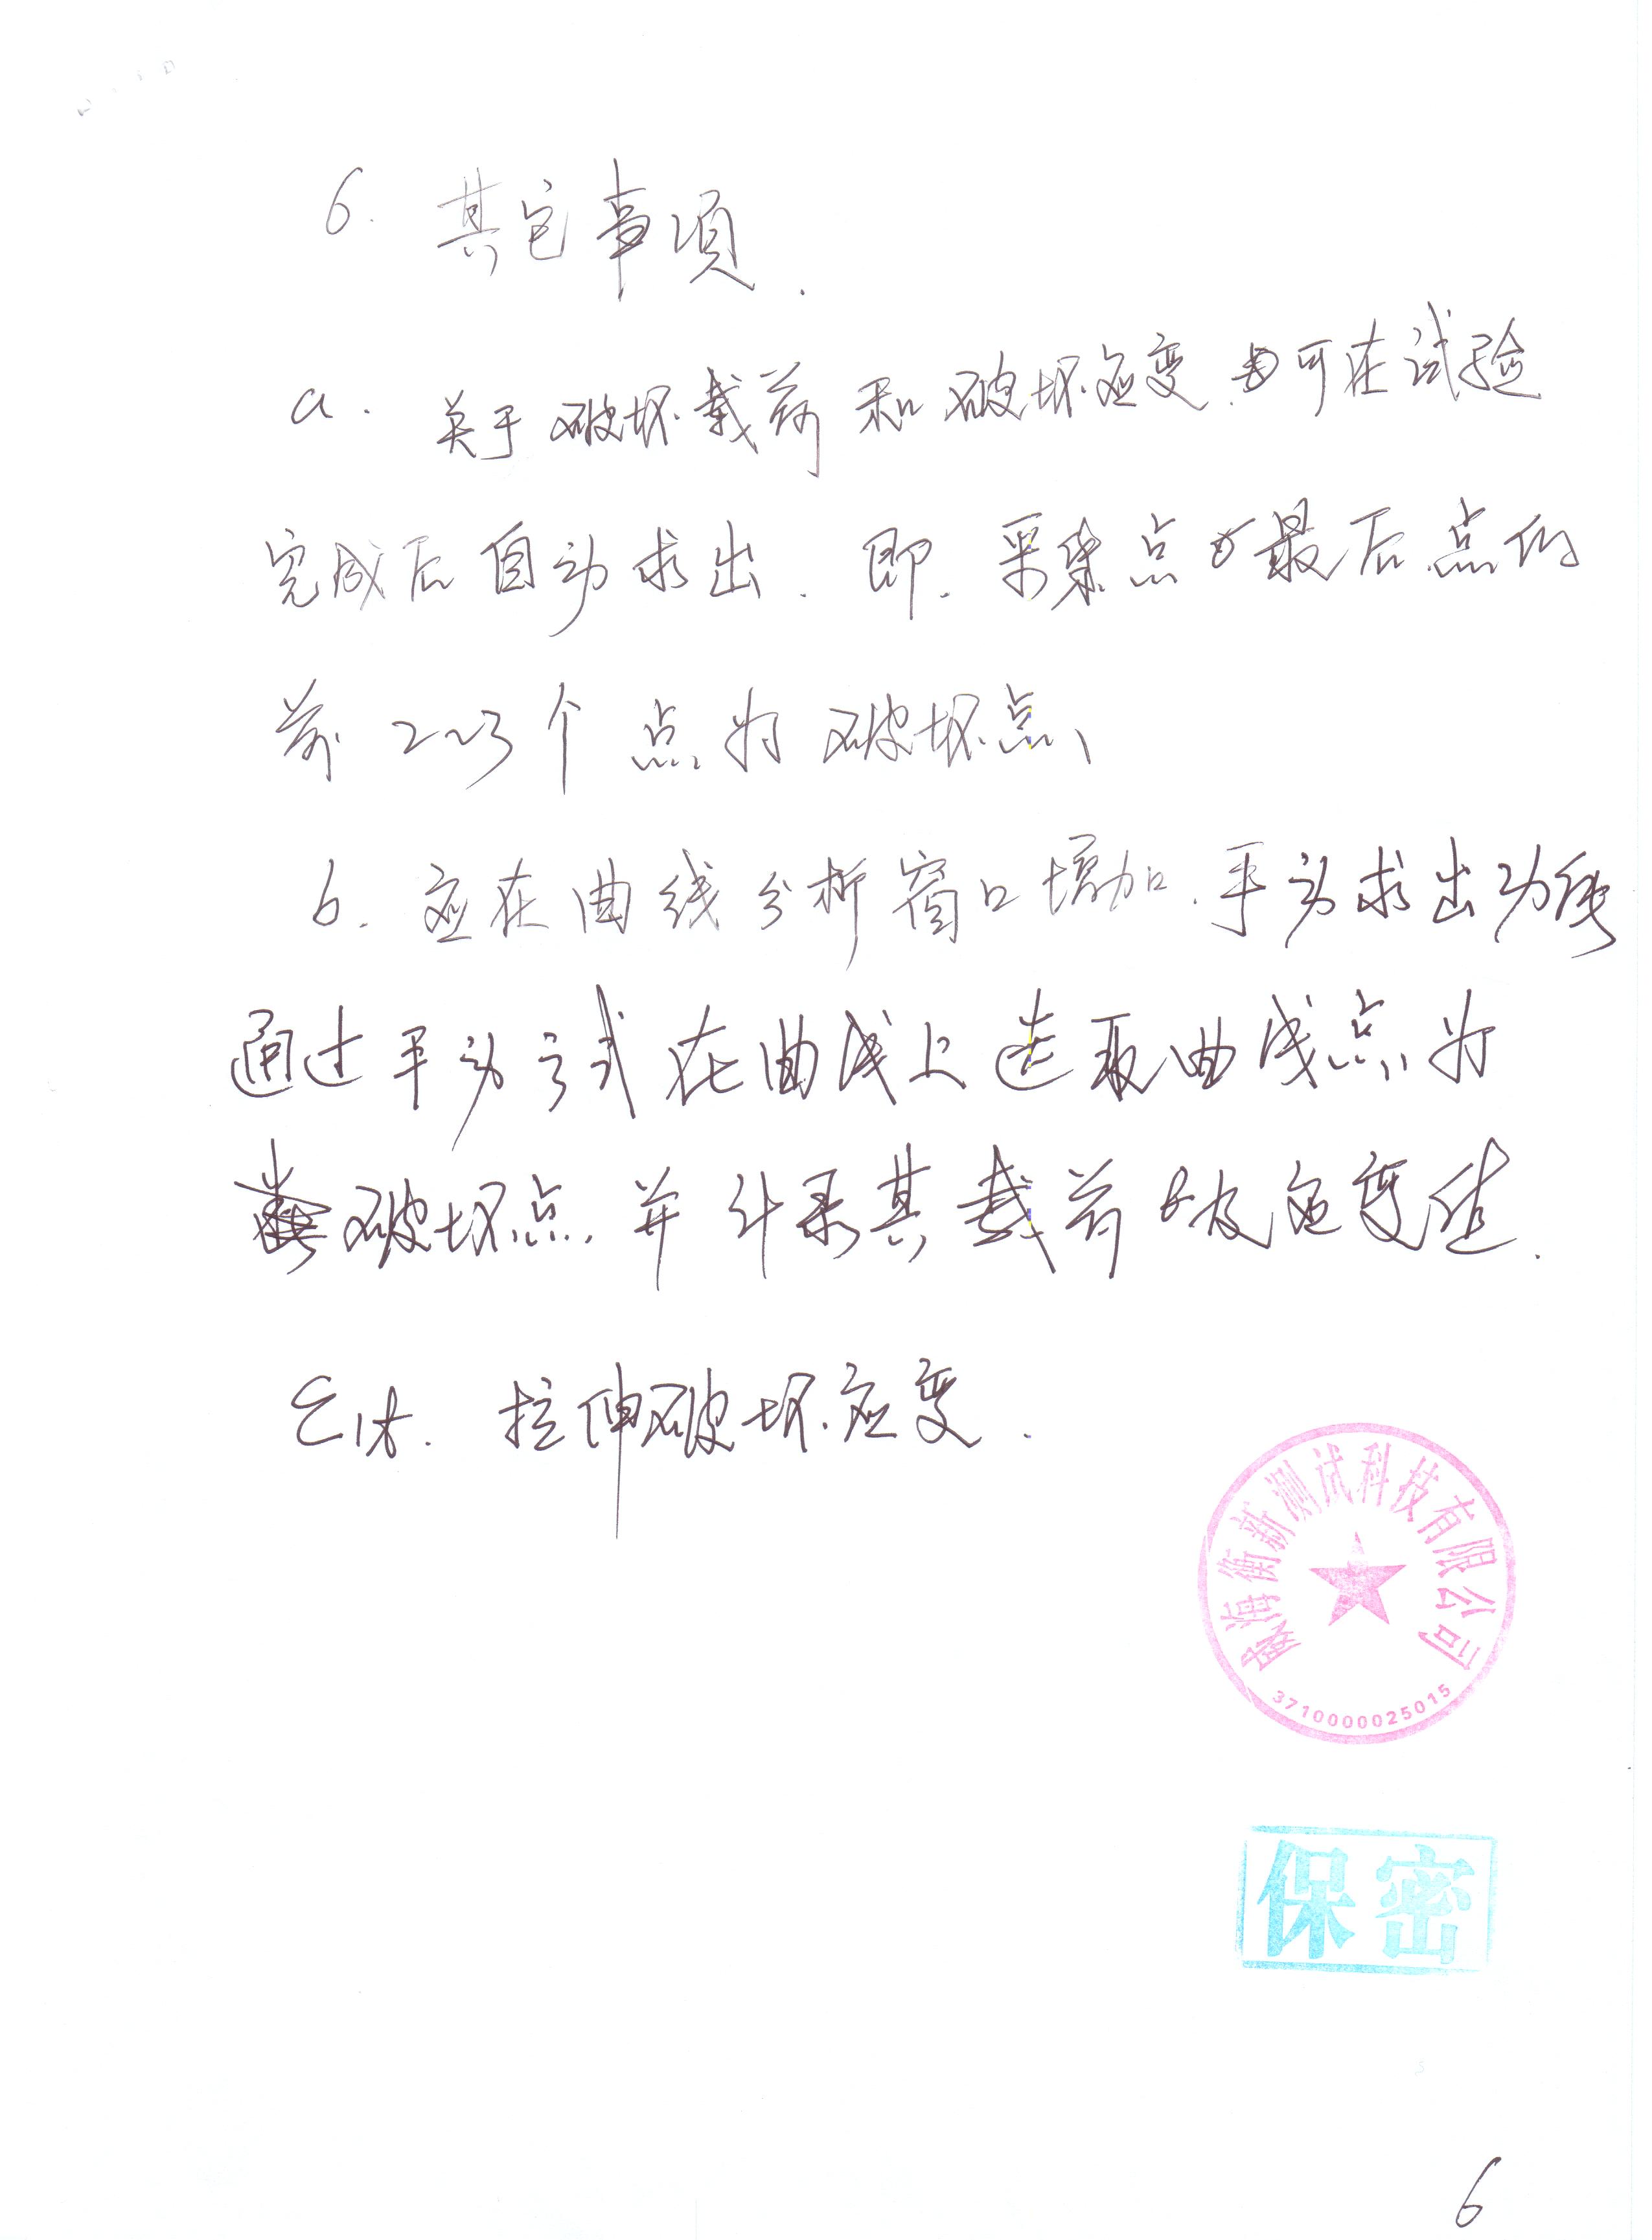 6. 其它事项.
a. 关于破坏载荷和破坏应变.可在试验
完成后自动求出.即.采集点最后点的
前2~3个点为破坏点、
b. 应在曲线分析窗口增加.手动求出功能
通过手动方式在曲线上选取曲线点为
破坏点.并计录其载荷及应变值.
拉伸破坏应变.
威海衡新测试科技有限公司
3710000025015
保密
6